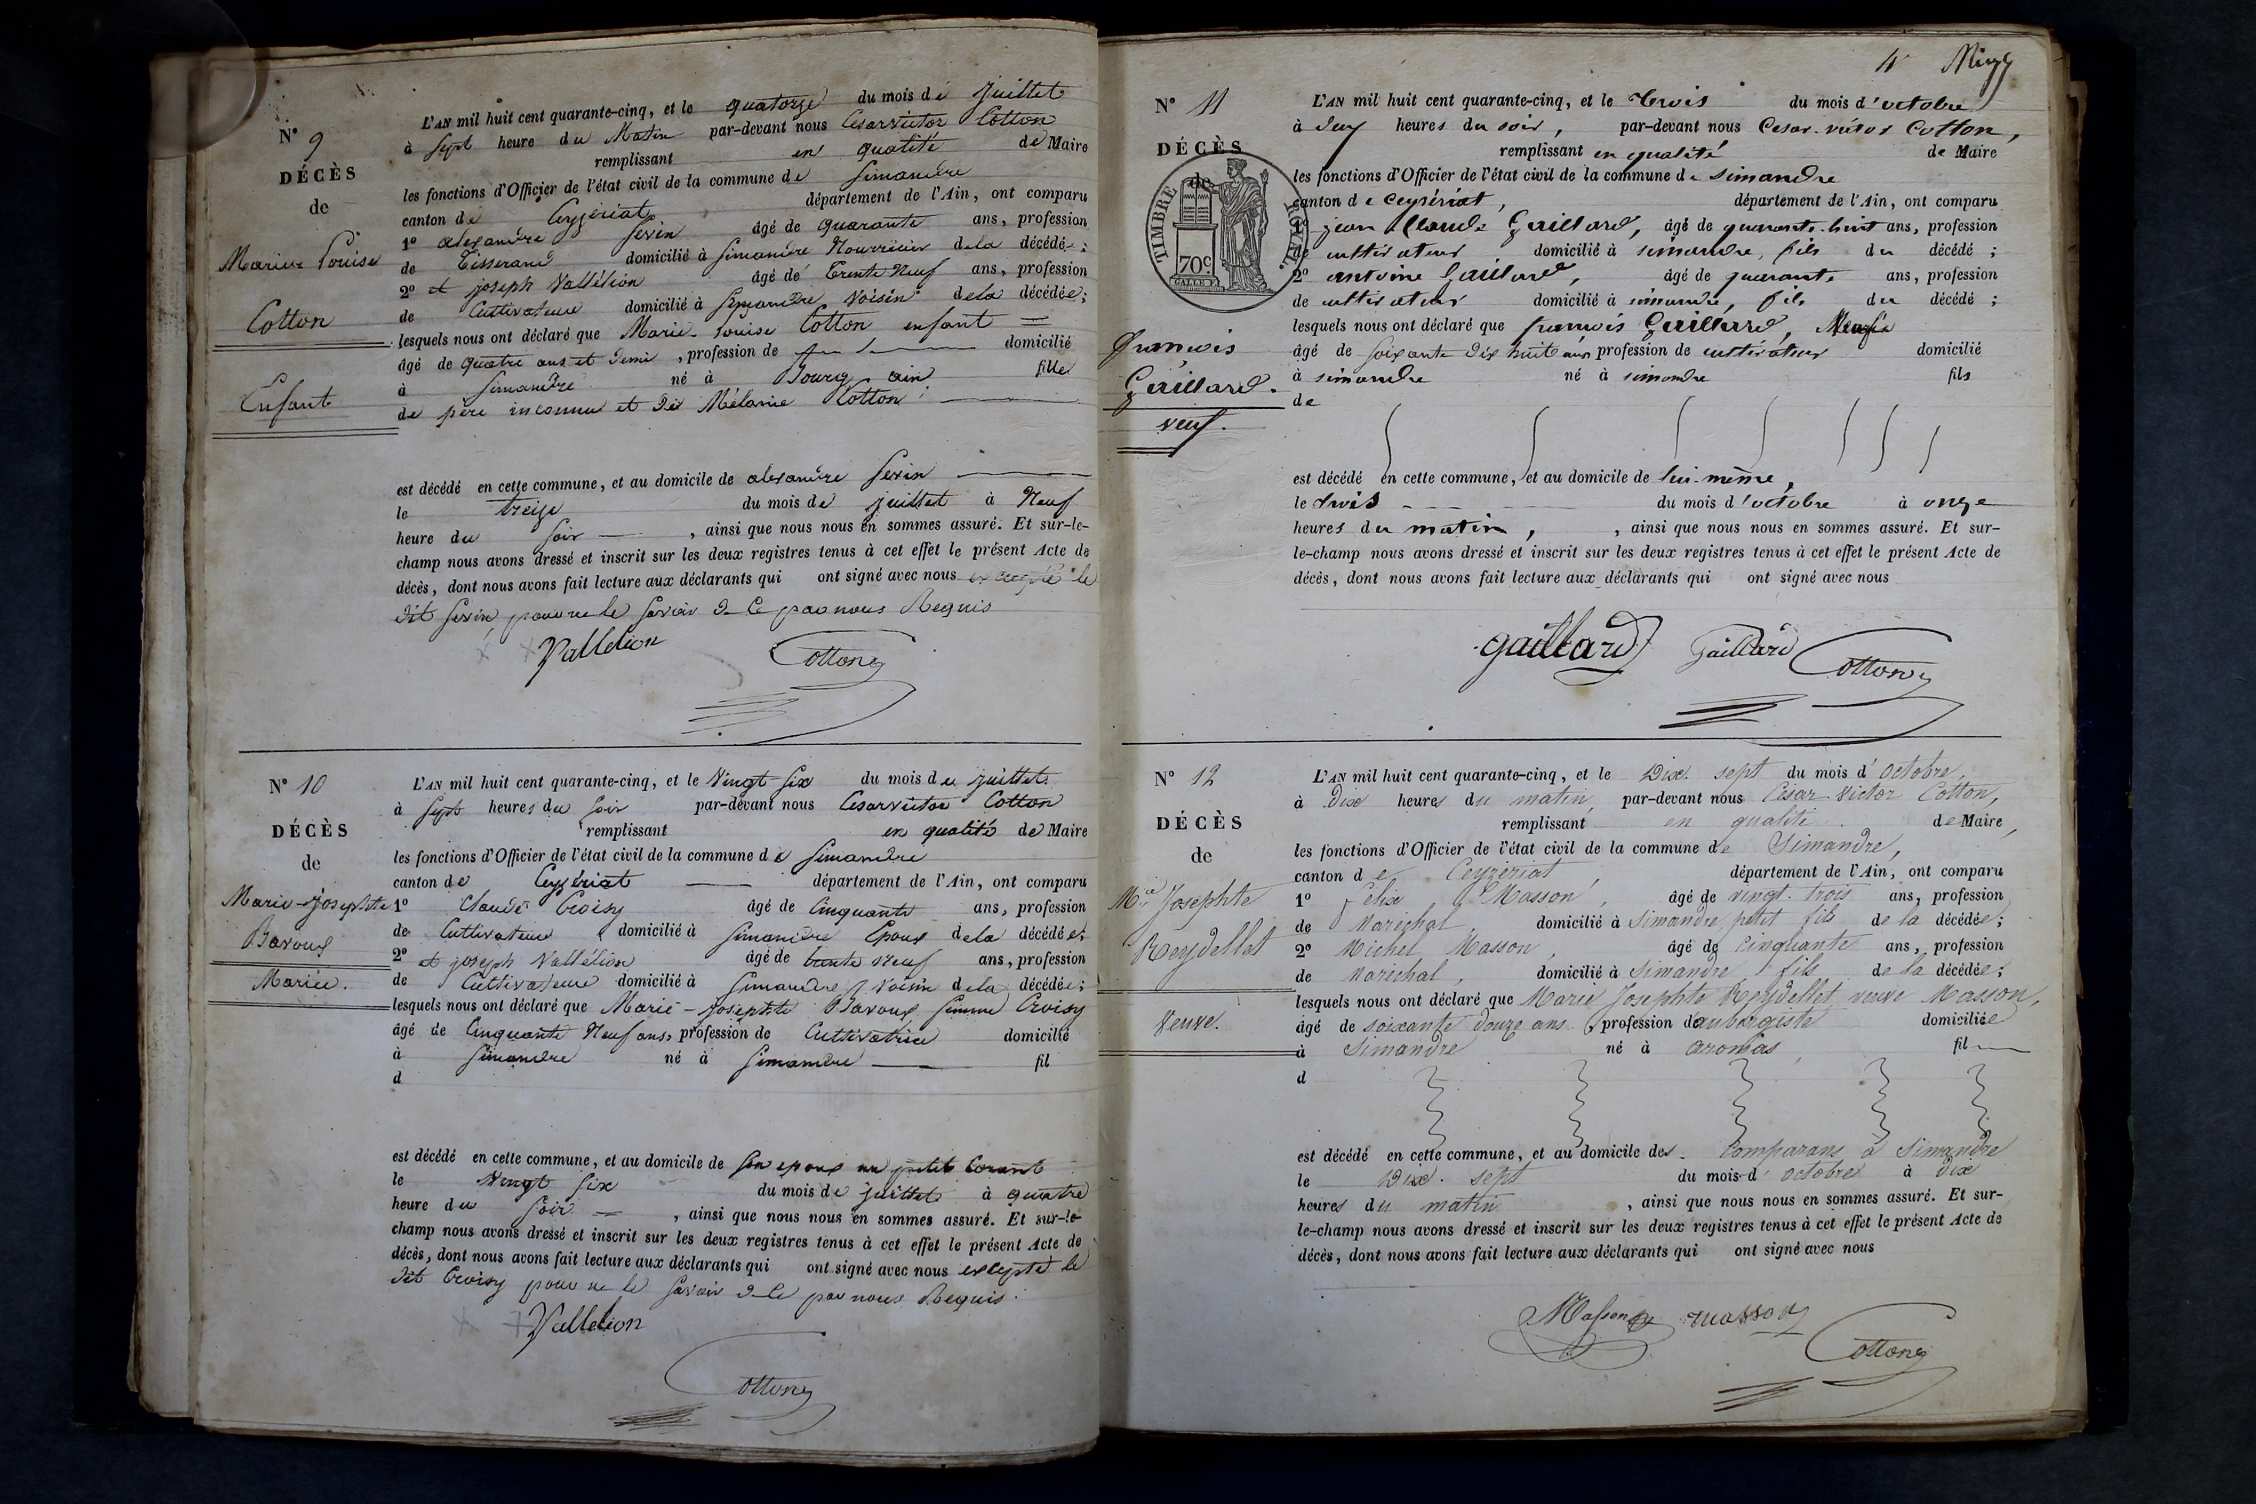 N° 9
DÉCÈS
de
Marie Louise
Cotton
Enfant
L'AN mil huit cent quarante-cinq, et le quatorze du mois de Juillet
à sept heure du Matin par-devant nous Cesar victor Cotton
remplissant en qualité de Maire
les fonctions d'Officier de l'état civil de la commune de Simandre
canton de Ceyzériat département de l'Ain, ont comparu
1° alexandre Serin âgé de quarante ans, profession
de Tisserand domicilié à Simandre Nourricier de la décédée;
2° et joseph Vallélion âgé de Trente Neuf ans, profession
de Cultivateur domicilié à Simandre Voisin de la décédée;
lesquels nous ont déclaré que Marie-Louise Cotton enfant
âgé de quatre ans et demi, profession de domicilié
à Simandre né à Bourg ain fille
de père inconnu et de Mélanie Cotton
est décédé en cette commune, et au domicile de alexandre Serin
le treize du mois de juillet à Neuf
heure du Soir, ainsi que nous nous en sommes assuré. Et sur-le-
champ nous avons dressé et inscrit sur les deux registres tenus à cet effet le présent Acte de
décès, dont nous avons fait lecture aux déclarants qui ont signé avec nous excepté le
dit Serin pour ne le savoir de ce par nous Requis
Vallelion Cotton
N° 10
DÉCÈS
de
Marie-Josephte
Bavoux
Mariée.
L'AN mil huit cent quarante-cinq, et le Vingt Six du mois de juillet
à Sept heures du Soir par-devant nous Cesar victor Cotton
remplissant en qualité de Maire
les fonctions d'Officier de l'état civil de la commune de Simandre
canton de Ceyzériat département de l'Ain, ont comparu
1° Claude Croisy âgé de Cinquante ans, profession
de Cultivateur domicilié à Simandre Epoux de la décédée;
2° et joseph Vallélion âgé de trente neuf ans, profession
de Cultivateur domicilié à Simandre voisin de la décédée;
lesquels nous ont déclaré que Marie-Josephte Bavoux femme Croisy
âgé de Cinquante Neuf ans, profession de Cultivatrice domicilié
à Simandre né à Simandre fil
d
est décédé en cette commune, et au domicile de son epoux au petit Corant
le Vingt Six du mois de juillet à quatre
heure du Soir, ainsi que nous nous en sommes assuré. Et sur-le-
champ nous avons dressé et inscrit sur les deux registres tenus à cet effet le présent Acte de
décès, dont nous avons fait lecture aux déclarants qui ont signé avec nous excepté le
dit Croisy pour ne le savoir de ce par nous Requis.
Vallelion
Cotton
4
N° 11
DÉCÈS
de
TIMBRE ROYAL.
70c
François
Gaillard.
veuf.
L'AN mil huit cent quarante-cinq, et le trois du mois d'octobre
à deux heures du soir, par-devant nous Cesar-victor Cotton,
remplissant en qualité de Maire
les fonctions d'Officier de l'état civil de la commune de simandre
canton de ceyzériat, département de l'Ain, ont comparu
1° jean Claude Gaillard, âgé de quarante-huit ans, profession
de cultivateur domicilié à simandre, fils du décédé;
2° antoine Gaillard, âgé de quarante ans, profession
de cultivateur domicilié à simandre, fils du décédé;
lesquels nous ont déclaré que françois Gaillard,
âgé de soixante dix huit ans profession de cultivateur domicilié
à simandre né à simandre fils
de
est décédé en cette commune, et au domicile de lui-même,
le trois du mois d'octobre à onze
heures du matin, , ainsi que nous nous en sommes assuré. Et sur-
le-champ nous avons dressé et inscrit sur les deux registres tenus à cet effet le présent Acte de
décès, dont nous avons fait lecture aux déclarants qui ont signé avec nous
gaillard Gaillard Cotton
N° 12
DÉCÈS
de
Mie Josephte
Reydellet
Veuve.
L'AN mil huit cent quarante-cinq, et le Dix-sept du mois d'octobre,
à Dix heures du matin, par-devant nous Cesar-Victor Cotton,
remplissant en qualité de Maire,
les fonctions d'Officier de l'état civil de la commune de Simandre,
canton de Ceyzériat, département de l'Ain, ont comparu
1° Félix Masson, âgé de vingt-trois ans, profession
de Maréchal, domicilié à Simandre, petit fils de la décédée;
2° Michel Masson, âgé de cinquante ans, profession
de Maréchal, domicilié à Simandre fils de la décédée;
lesquels nous ont déclaré que Marie Josephte Reydellet veuve Masson,
âgé de soixante douze ans, profession d'aubergiste domiciliée
à Simandre né à aromas, fil
d
est décédé en cette commune, et au domicile des Comparans à Simandre
le Dix-sept du mois d'octobre à Dix
heures du matin, ainsi que nous nous en sommes assuré. Et sur-
le-champ nous avons dressé et inscrit sur les deux registres tenus à cet effet le présent Acte de
décès, dont nous avons fait lecture aux déclarants qui ont signé avec nous
Masson masson
Cotton